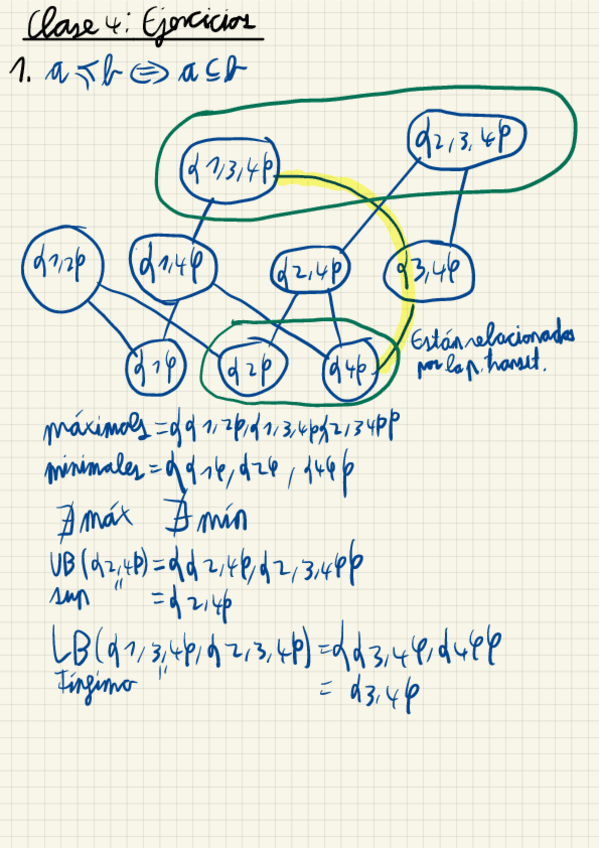 Clase 4: Ejercicios
1. a ≼ b ⟺ a ⊆ b
{2,3,4}
{1,3,4}
{1,2} {1,4} {2,4} {3,4}
Están relacionados
por la p. transit.
{1} {2} {4}
máximals = {{1,2},{1,3,4},{2,3,4}}
minimales = {{1},{2},{4}}
∄ máx ∄ mín
UB ({2,4}) = {{2,4},{2,3,4}}
sup " = {2,4}
LB ({1,3,4},{2,3,4}) = {{3,4},{4}}
Ínfimo " = {3,4}